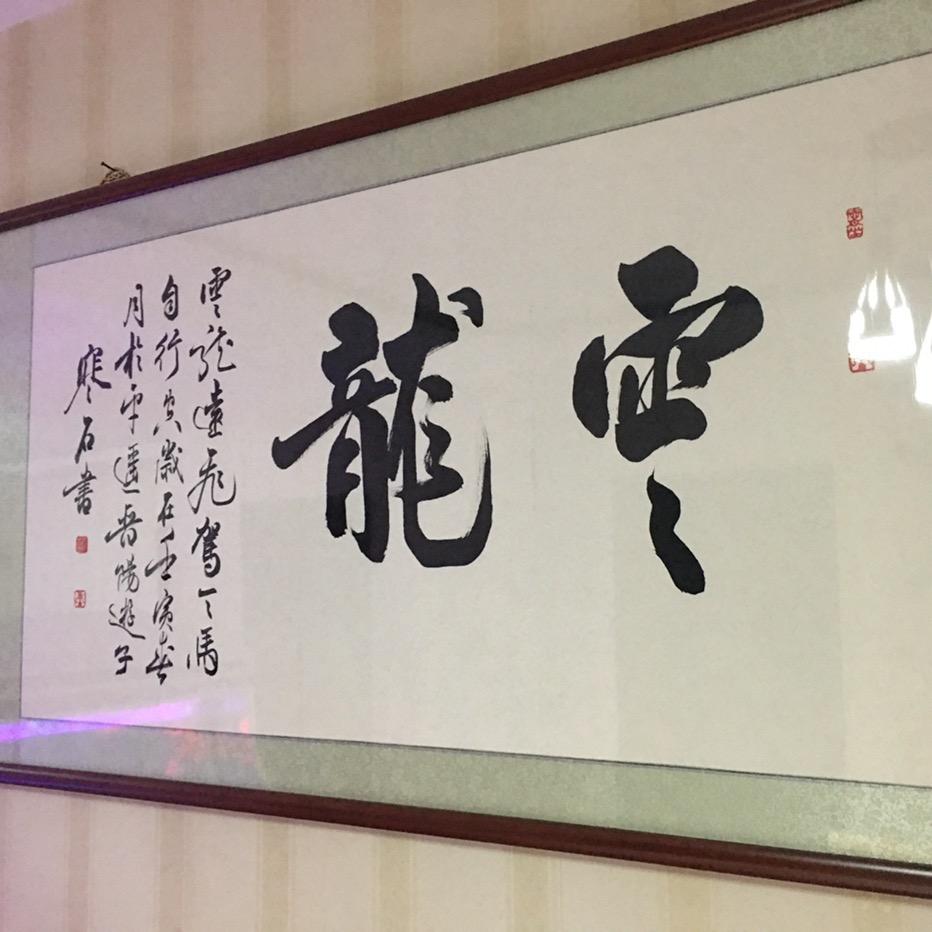 雲龍
雲龍遠飛駕天馬
自行空歲在壬寅春
月於平遥晋陽遊子
寒石書